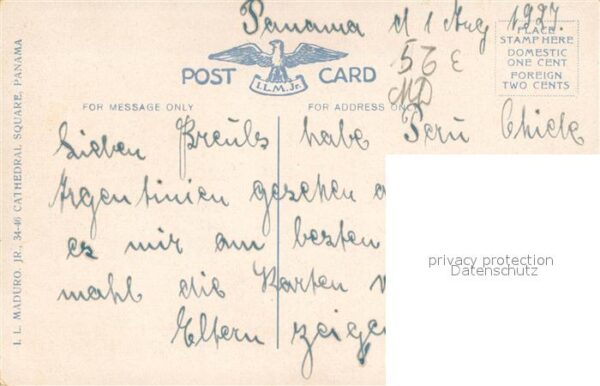 Panama d 1 Aug 1927.
PLACE
STAMP HERE
DOMESTIC
ONE CENT
FOREIGN
TWO CENTS
56 E
MD
POST CARD
I.L.M. Jr.
FOR MESSAGE ONLY
FOR ADDRESS ONLY
Lieben Breuls habe Peru Chiele
Argentinien gesehen
es mir am besten
mahl die Karten
Eltern zeigen
I. L. MADURO. JR., 34-46 CATHEDRAL SQUARE, PANAMA
privacy protection
Datenschutz